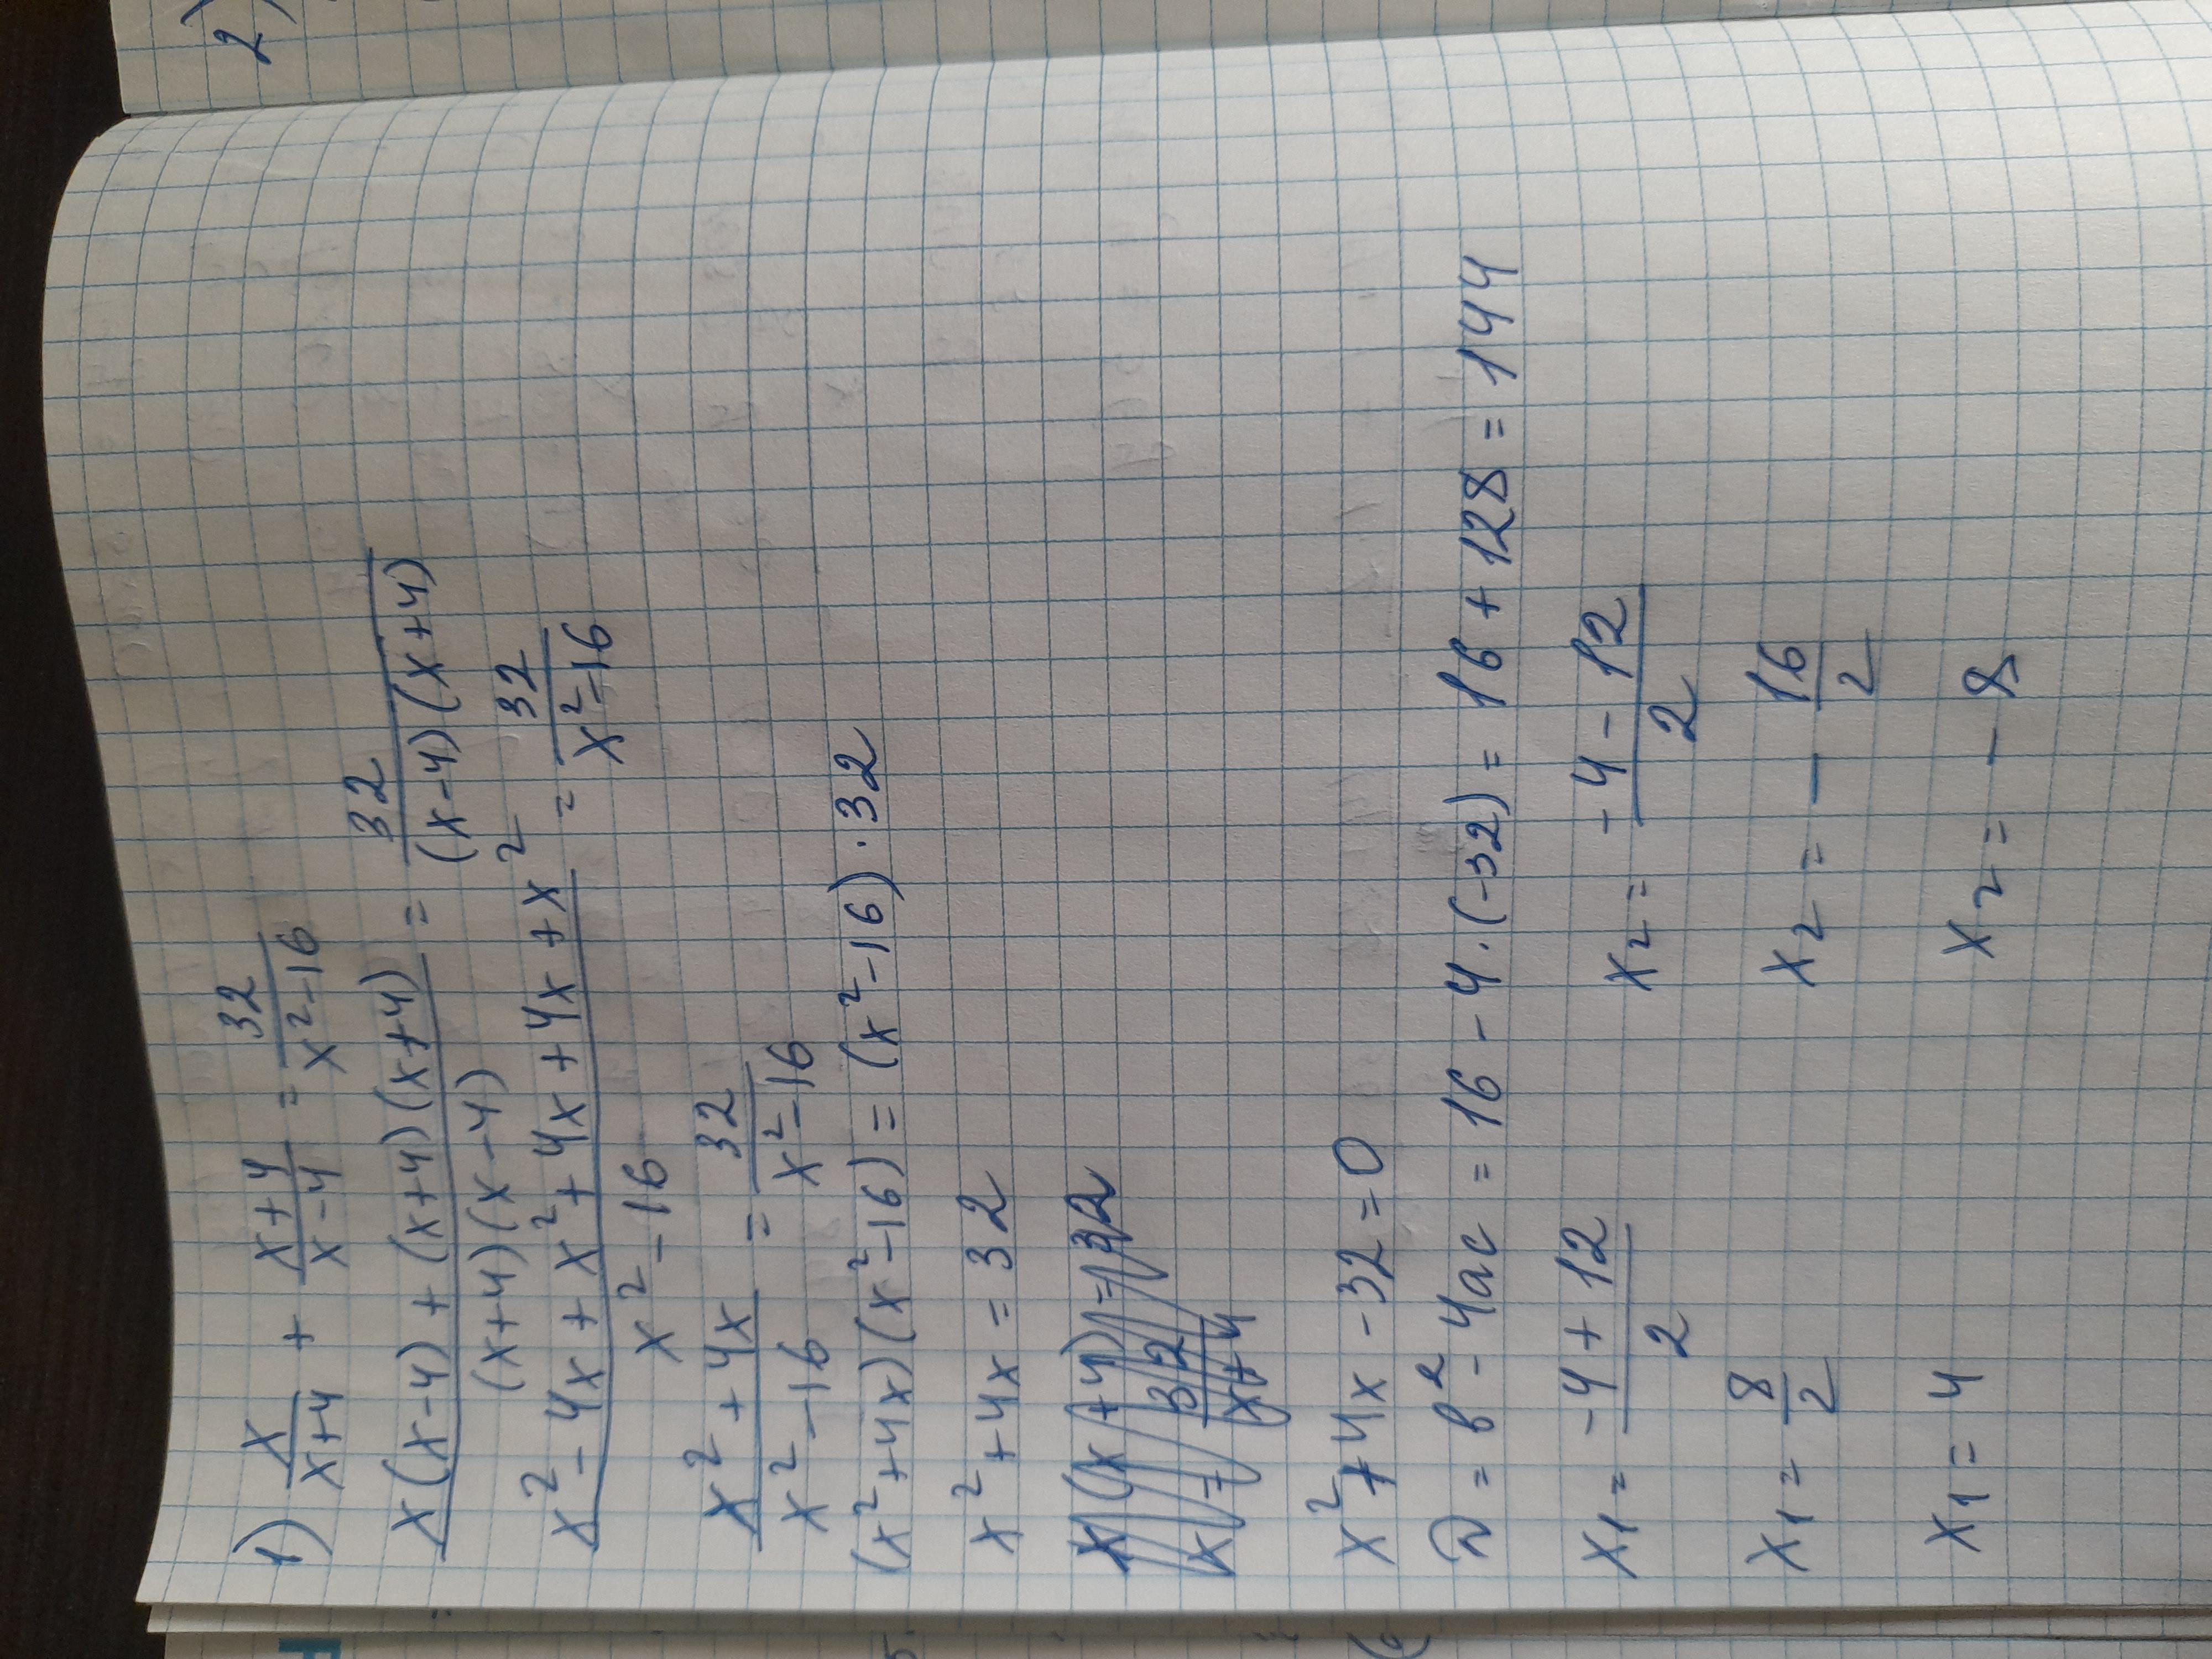 2)
1) x/(x+4) + (x+4)/(x-4) = 32/(x²-16)
(x(x-4) + (x+4)(x+4))/((x+4)(x-4)) = 32/((x-4)(x+4))
(x² - 4x + x² + 4x + 4x + x²)/(x² - 16) = 32/(x²-16)
(x² + 4x)/(x² - 16) = 32/(x² - 16)
(x²+4x)(x²-16) = (x²-16)·32
x² + 4x = 32
x(x+4) = 32
x = 32/(x+4)
x² + 4x - 32 = 0
D = b² - 4ac = 16 - 4·(-32) = 16 + 128 = 144
x₁ = (-4 + 12)/2 x₂ = (-4 - 12)/2
x₁ = 8/2 x₂ = - 16/2
x₁ = 4 x₂ = - 8